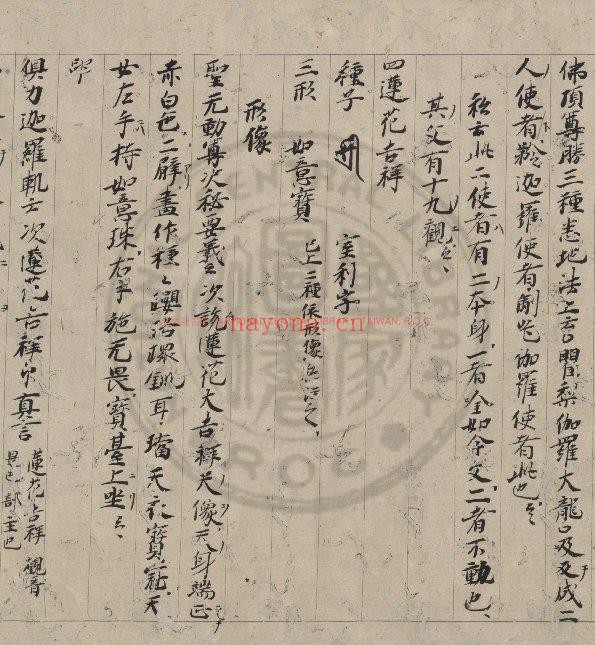 佛頂尊勝三種悉地法上云閻梨伽羅大龍口及及成二
人使者矜迦羅使者制吒伽羅使者此也云々
私云此二使者有二本身一者全如今文二者不動也、
其父有十九觀云々、
四蓮花吉祥
種子 室利字
三形 如意寶 已上二種依形像
形像
聖无動尊次秘要義云次說蓮花大吉祥天像天身端正
赤白色二臂畫作種々瓔珞環釧耳璫天衣寶冠天
女左手持如意珠右手施无畏寶臺上坐云々、
印
俱力迦羅軌云次蓮花吉祥印真言 蓮花吉祥觀音
部主也
nayona.cn
TAIWAN, R.O.C